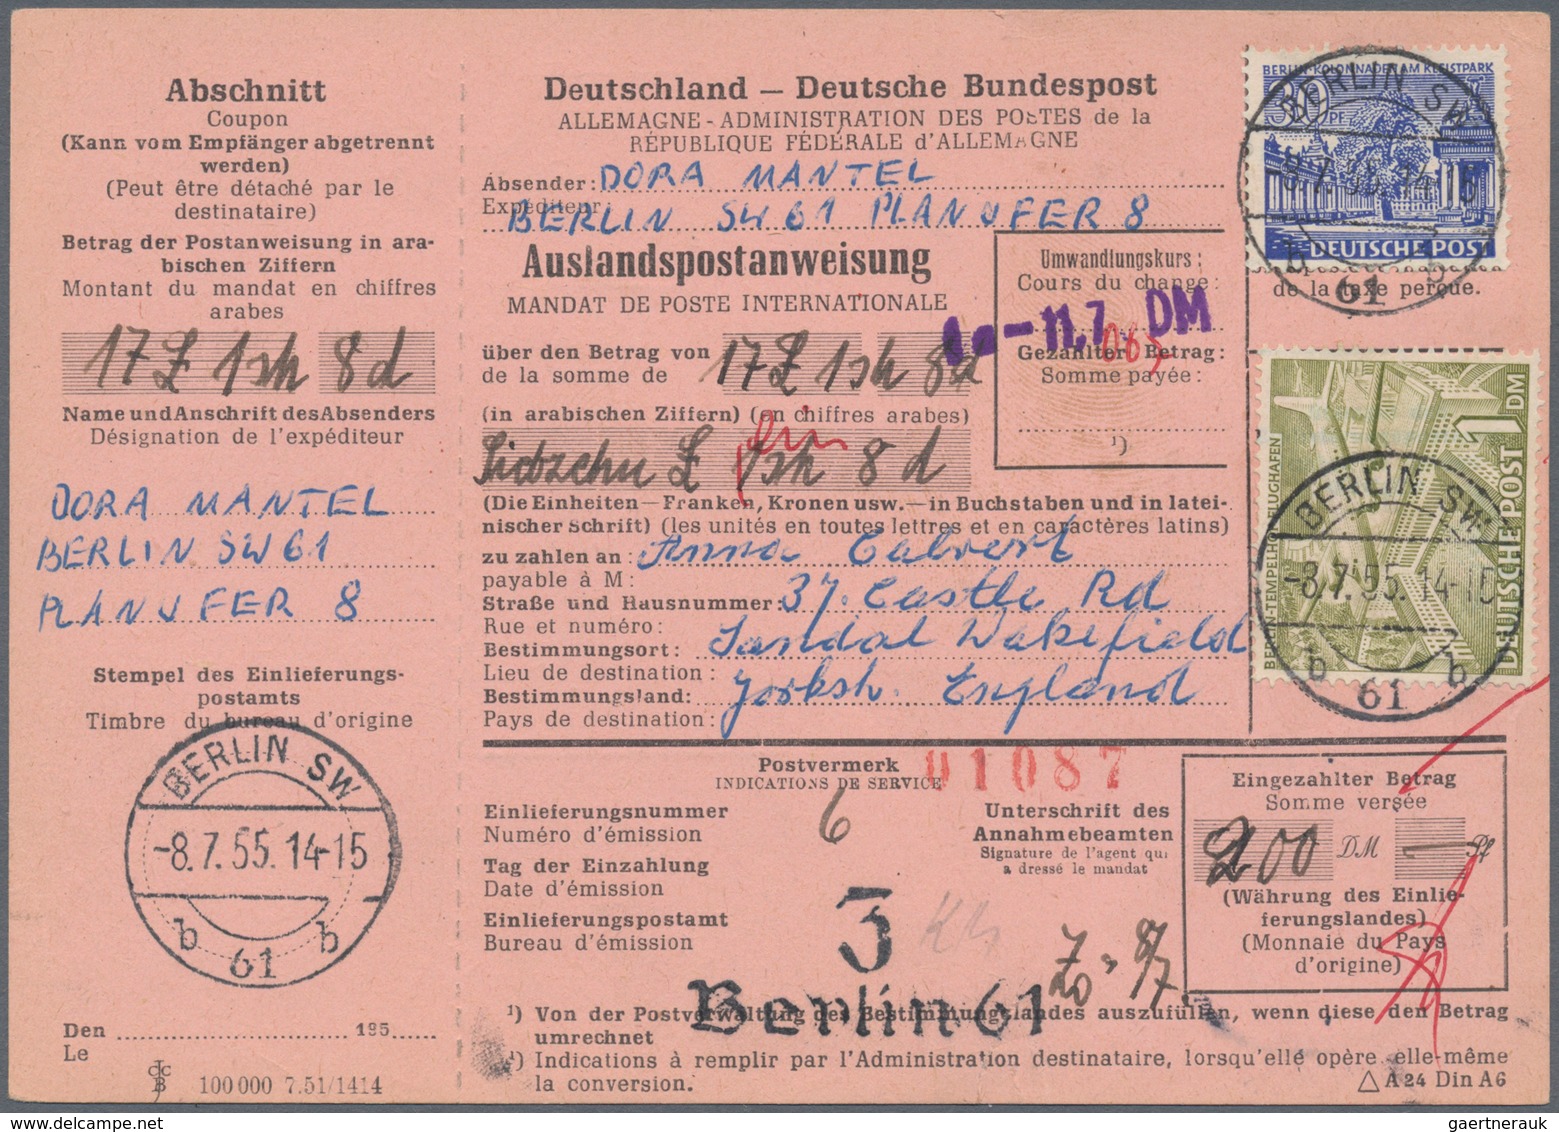 Abschnitt
Coupon
(Kann vom Empfänger abgetrennt
werden)
(Peut être détaché par le
destinataire)
Betrag der Postanweisung in ara-
bischen Ziffern
Montant du mandat en chiffres
arabes
17 £ 1 sh 8 d
Name und Anschrift des Absenders
Désignation de l'expéditeur
DORA MANTEL
BERLIN SW 61
PLANUFER 8
Stempel des Einlieferungs-
postamts
Timbre du bureau d'origine
BERLIN SW
-8.7.55.14-15
b 61 b
Den 195
Le
100 000 7.51/1414
Deutschland — Deutsche Bundespost
ALLEMAGNE - ADMINISTRATION DES POSTES de la
RÉPUBLIQUE FÉDÉRALE d'ALLEMAGNE
Absender: DORA MANTEL
Expéditeur: BERLIN SW 61 PLANUFER 8
Auslandspostanweisung
MANDAT DE POSTE INTERNATIONALE
über den Betrag von
de la somme de
17 £ 1 sh 8 d
(in arabischen Ziffern) (en chiffres arabes)
Siebzehn £ 1 sh 8 d
ein
(Die Einheiten — Franken, Kronen usw. — in Buchstaben und in latei-
nischer Schrift) (les unités en toutes lettres et en caractères latins)
zu zahlen an: Anna Calvert
payable à M:
Straße und Hausnummer: 37. Castle Rd
Rue et numéro:
Bestimmungsort: Sandal Wakefield
Lieu de destination:
Bestimmungsland: Yorksh. England
Pays de destination:
Umwandlungskurs:
Cours du change:
-11.7. DM
Gezahlter Betrag:
Somme payée:
¹)
BERLIN-KOLONNADEN AM KLEISTPARK
30 PF
DEUTSCHE POST
BERLIN SW
-8.7.55.14-15
b 61 b
de la taxe perçue.
BERLIN-TEMPELHOF FLUGHAFEN
1 DM
DEUTSCHE POST
BERLIN SW
-8.7.55.14-15
b 61 b
Postvermerk
INDICATIONS DE SERVICE
01087
Einlieferungsnummer
Numéro d'émission
6
Tag der Einzahlung
Date d'émission
Einlieferungspostamt
Bureau d'émission
3
Berlin 61
Unterschrift des
Annahmebeamten
Signature de l'agent qui
a dressé le mandat
8/7
Eingezahlter Betrag
Somme versée
200 DM — Pf
(Währung des Einlie-
ferungslandes)
(Monnaie du Pays
d'origine)
¹) Von der Postverwaltung des Bestimmungslandes auszufüllen, wenn diese den Betrag
umrechnet
¹) Indications à remplir par l'Administration destinataire, lorsqu'elle opère elle-même
la conversion.
△ A 24 Din A6
gaertnerauk